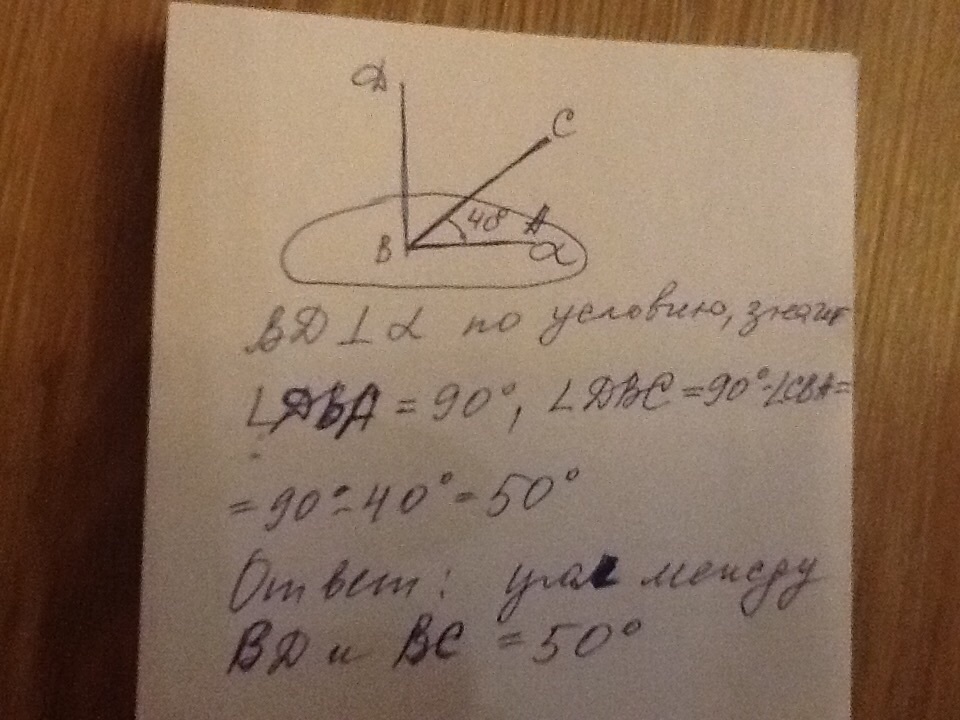 D
C
40°
A
B
α
BD ⊥ α по условию, значит
∠DBA = 90°, ∠DBC = 90° - ∠CBA =
= 90° - 40° = 50°
Ответ: угол между
BD и BC = 50°